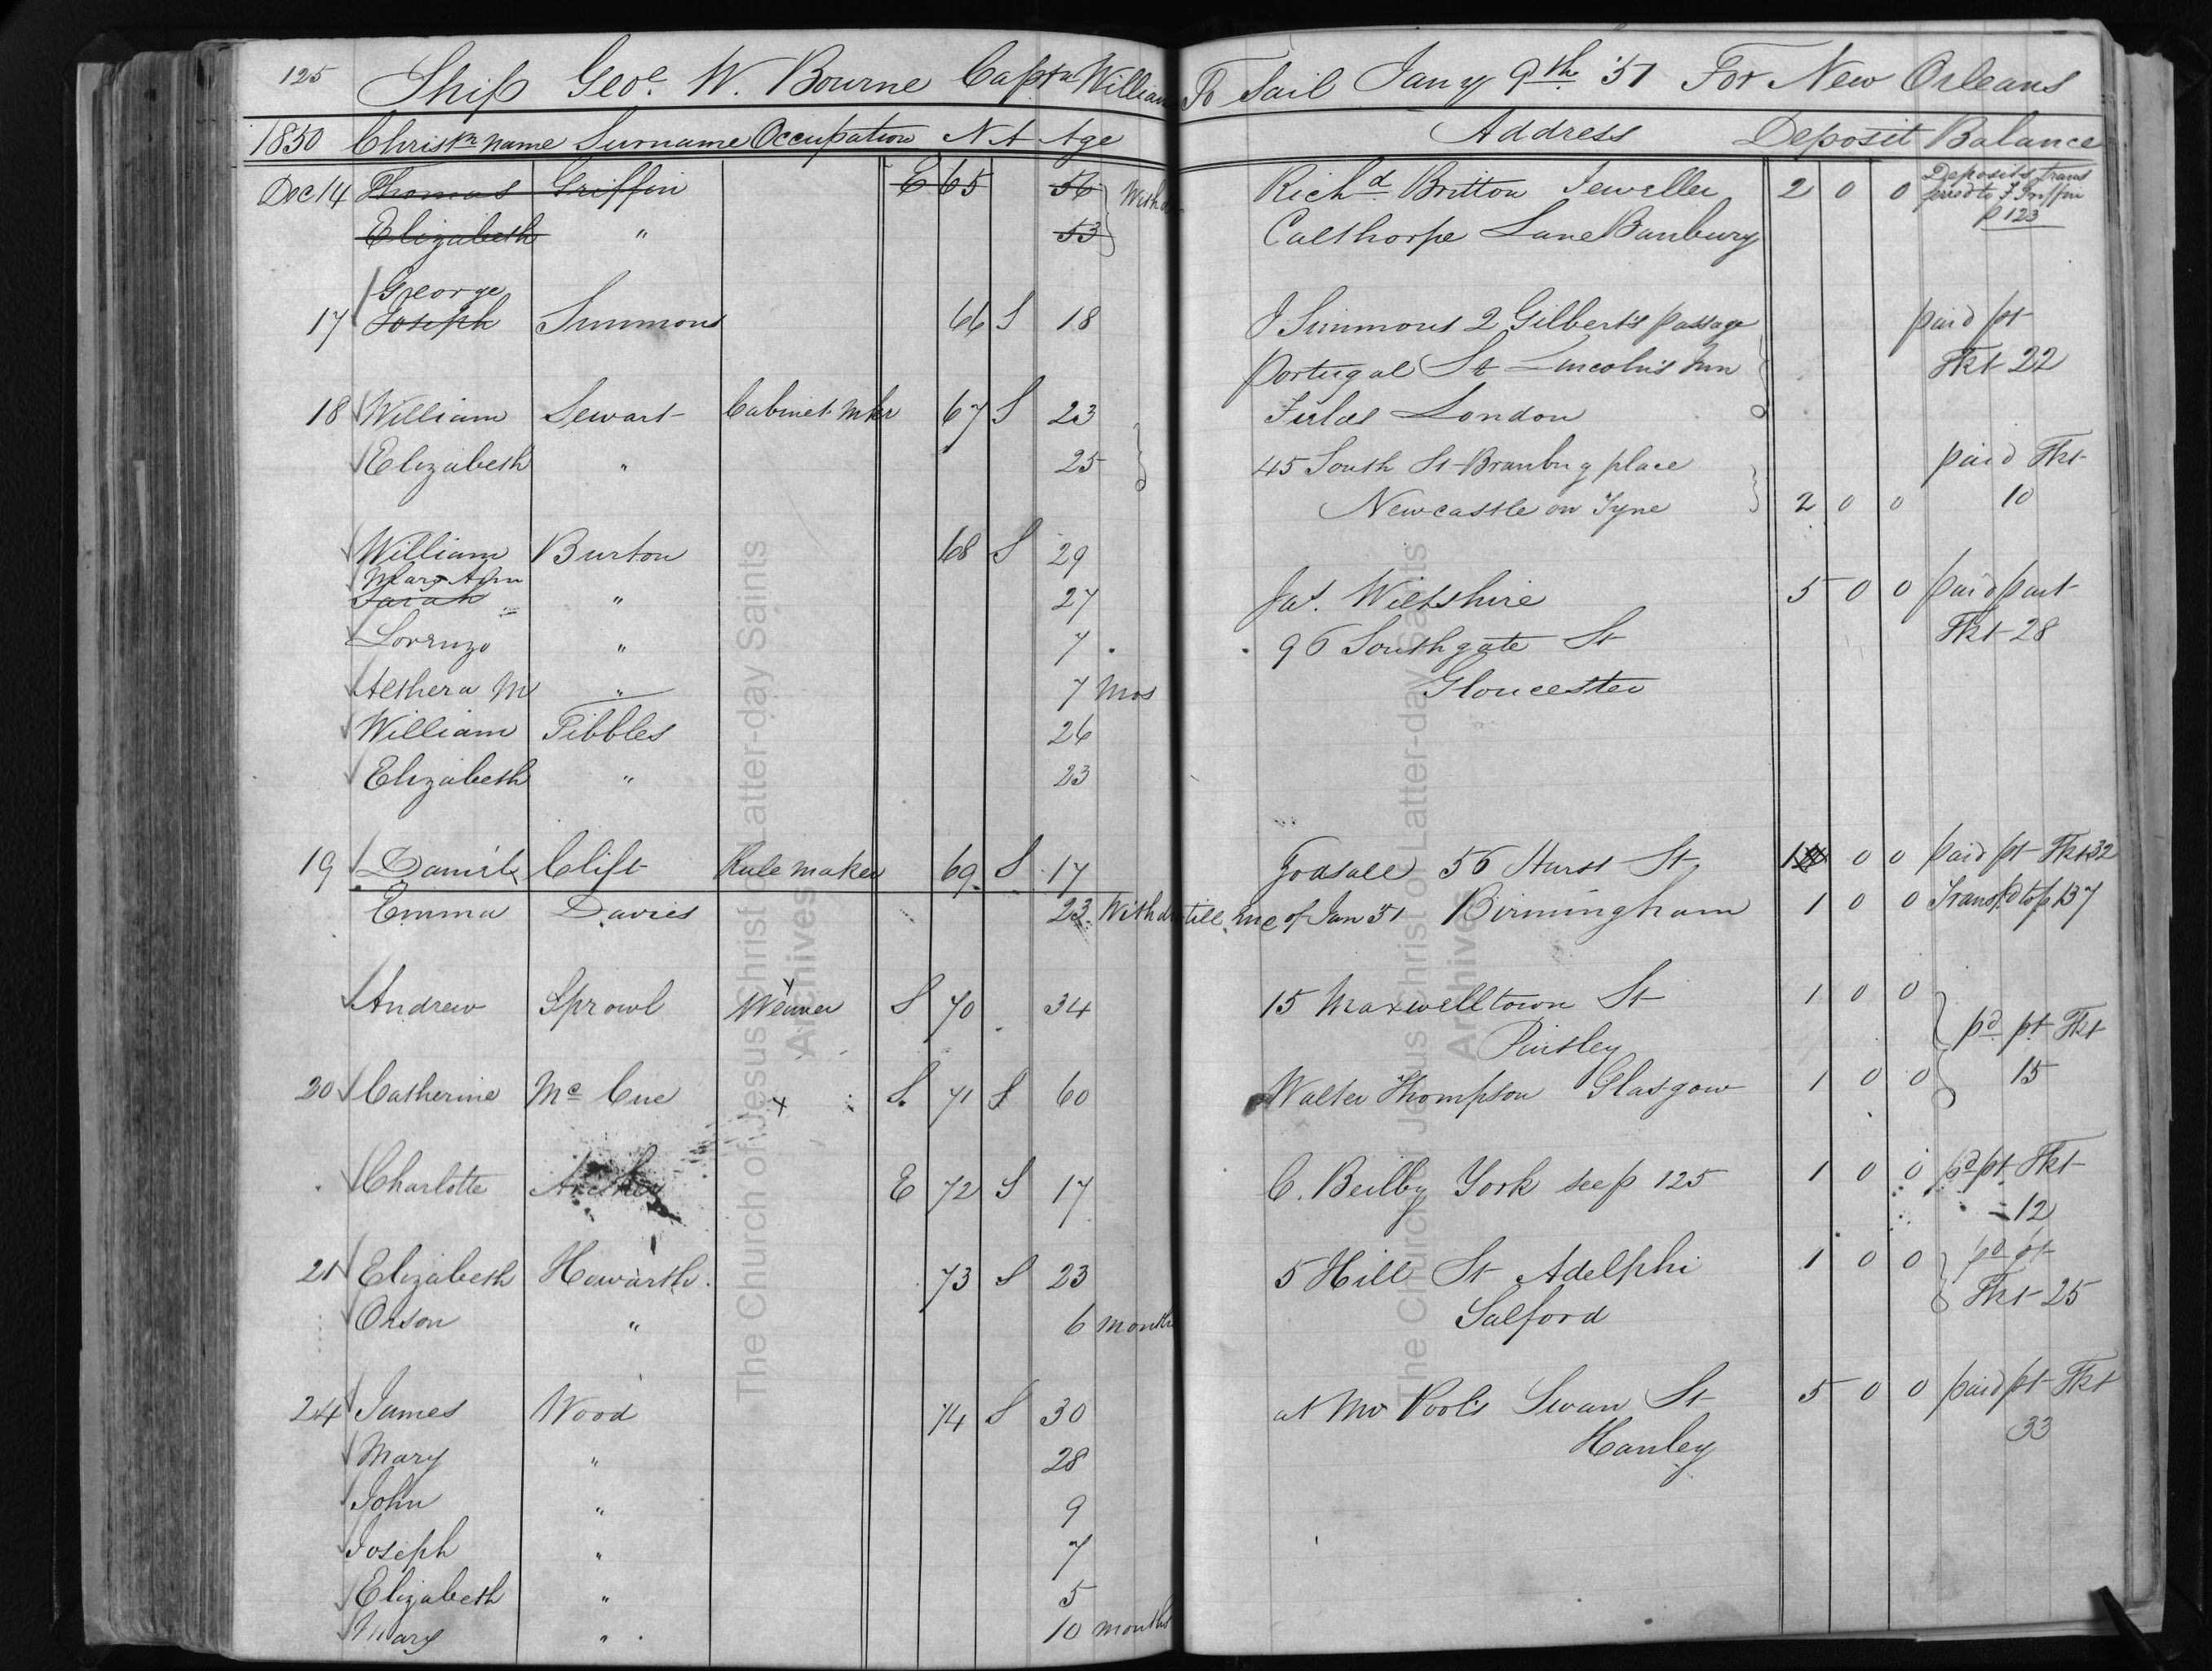 125 Ship Geo. W. Bourne Captn William To Sail Jany 9th '51 For New Orleans
1850 Christn name Surname Occupation N A Age Address Deposit Balance
Dec 14 Thomas Griffin E 65 56 Withd Richd Britton Jeweller 2 0 0 Deposits trans
ferred to J Griffin
Elizabeth " 53 Calthorpe Lane Banbury p 123
George
17 Joseph Simmons 66 S 18 J Simmons 2 Gilbert's passage paid pt
Portugal St Lincoln's Inn Tkt 22
18 William Sewart Cabinet Mkr 67 S 23 Fields London
Elizabeth " 25 45 South St place paid Tkt
Newcastle on Tyne 2 0 0 10
William Burton 68 S 29
Mary Ann
Sarah " 27 Jas. Wiltshire 5 0 0 paid part
Lorenzo " 7 96 Southgate St Tkt 28
Aethera M " 7 mos Gloucester
William Tibbles 26
Elizabeth " 23
19 Daniel Clift Rule maker 69 S 17 Godsall 56 Hurst St 1 0 0 paid pt Tkt 32
Emma Davies 23 Withd till of Jan 51 Birmingham 1 0 0 Transfd to p 137
Andrew Sprowl Weaver S 70 34 15 Maxwelltown St 1 0 0
Paisley pd pt Tkt
20 Catherine Mc Cue x S. 71 S 60 Walter Thompson Glasgow 1 0 0 15
Charlotte E 72 S 17 C. Beilby York see p 125 1 0 0 pd pt Tkt
12
21 Elizabeth Howarth 73 S 23 5 Hill St Adelphi 1 0 0 pd pt
Orson " 6 months Salford Tkt 25
24 James Wood 74 S 30 at Mr Pools Swan St 5 0 0 paid pt Tkt
Mary " 28 Hanley 33
John " 9
Joseph " 7
Elizabeth " 5
Mary " 10 months
The Church of Jesus Christ of Latter-day Saints
Archives
The Church of Jesus Christ of Latter-day Saints
Archives